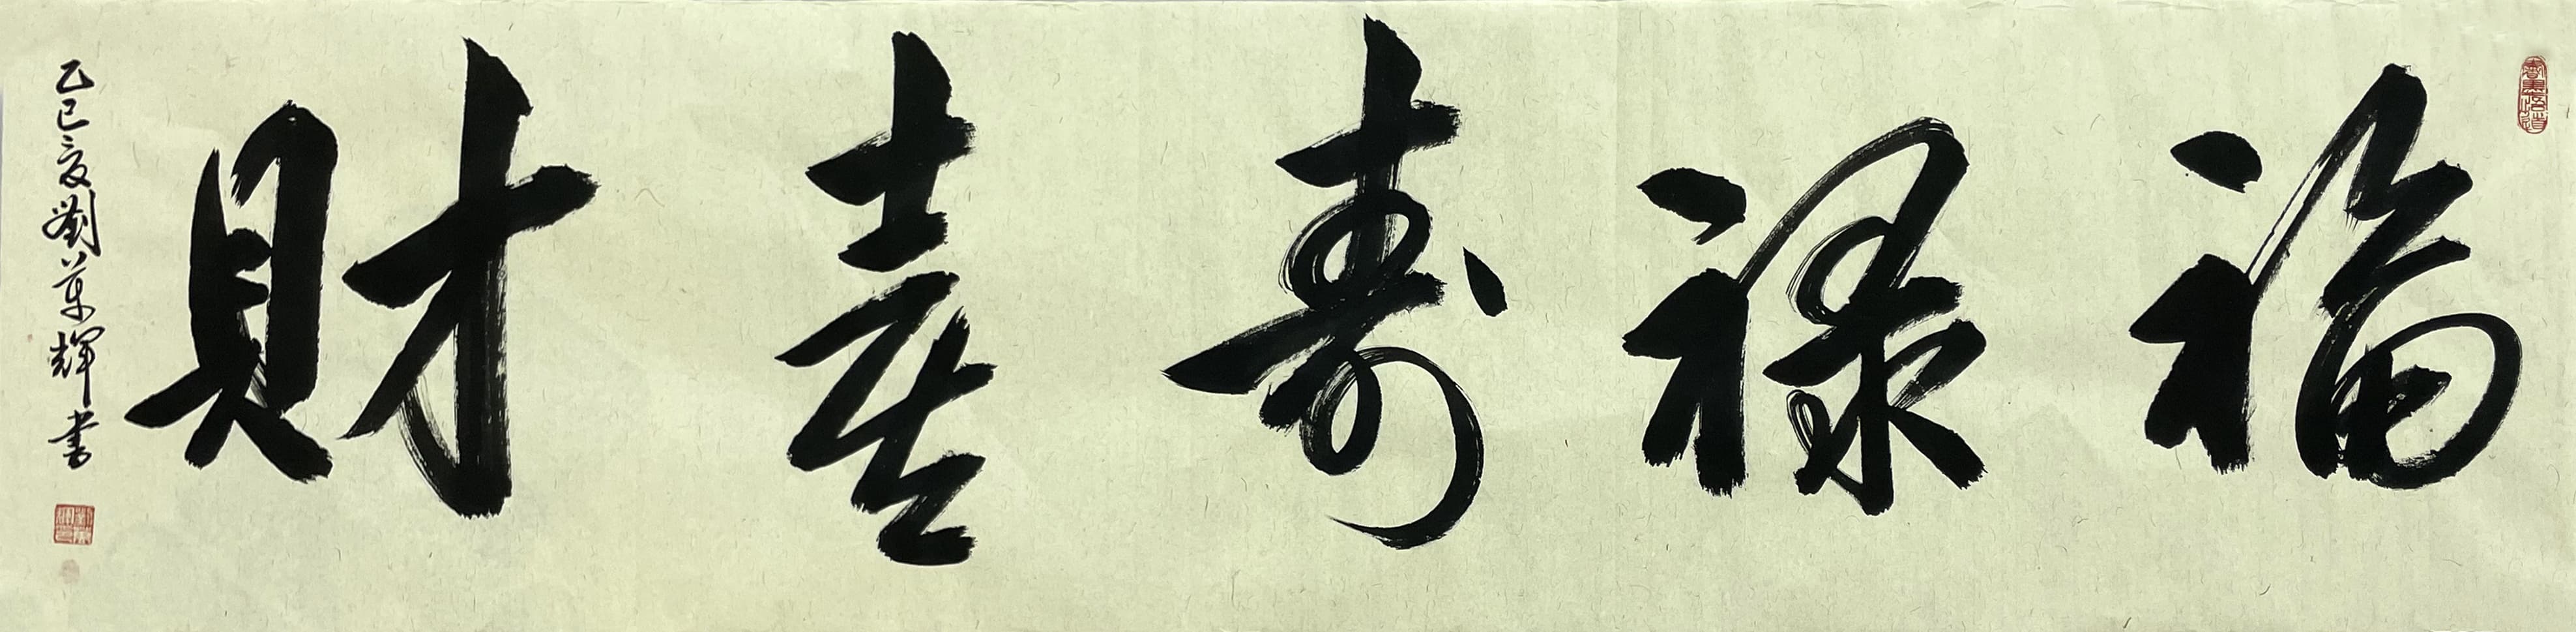 福禄寿喜財
乙巳夏劉萬輝書